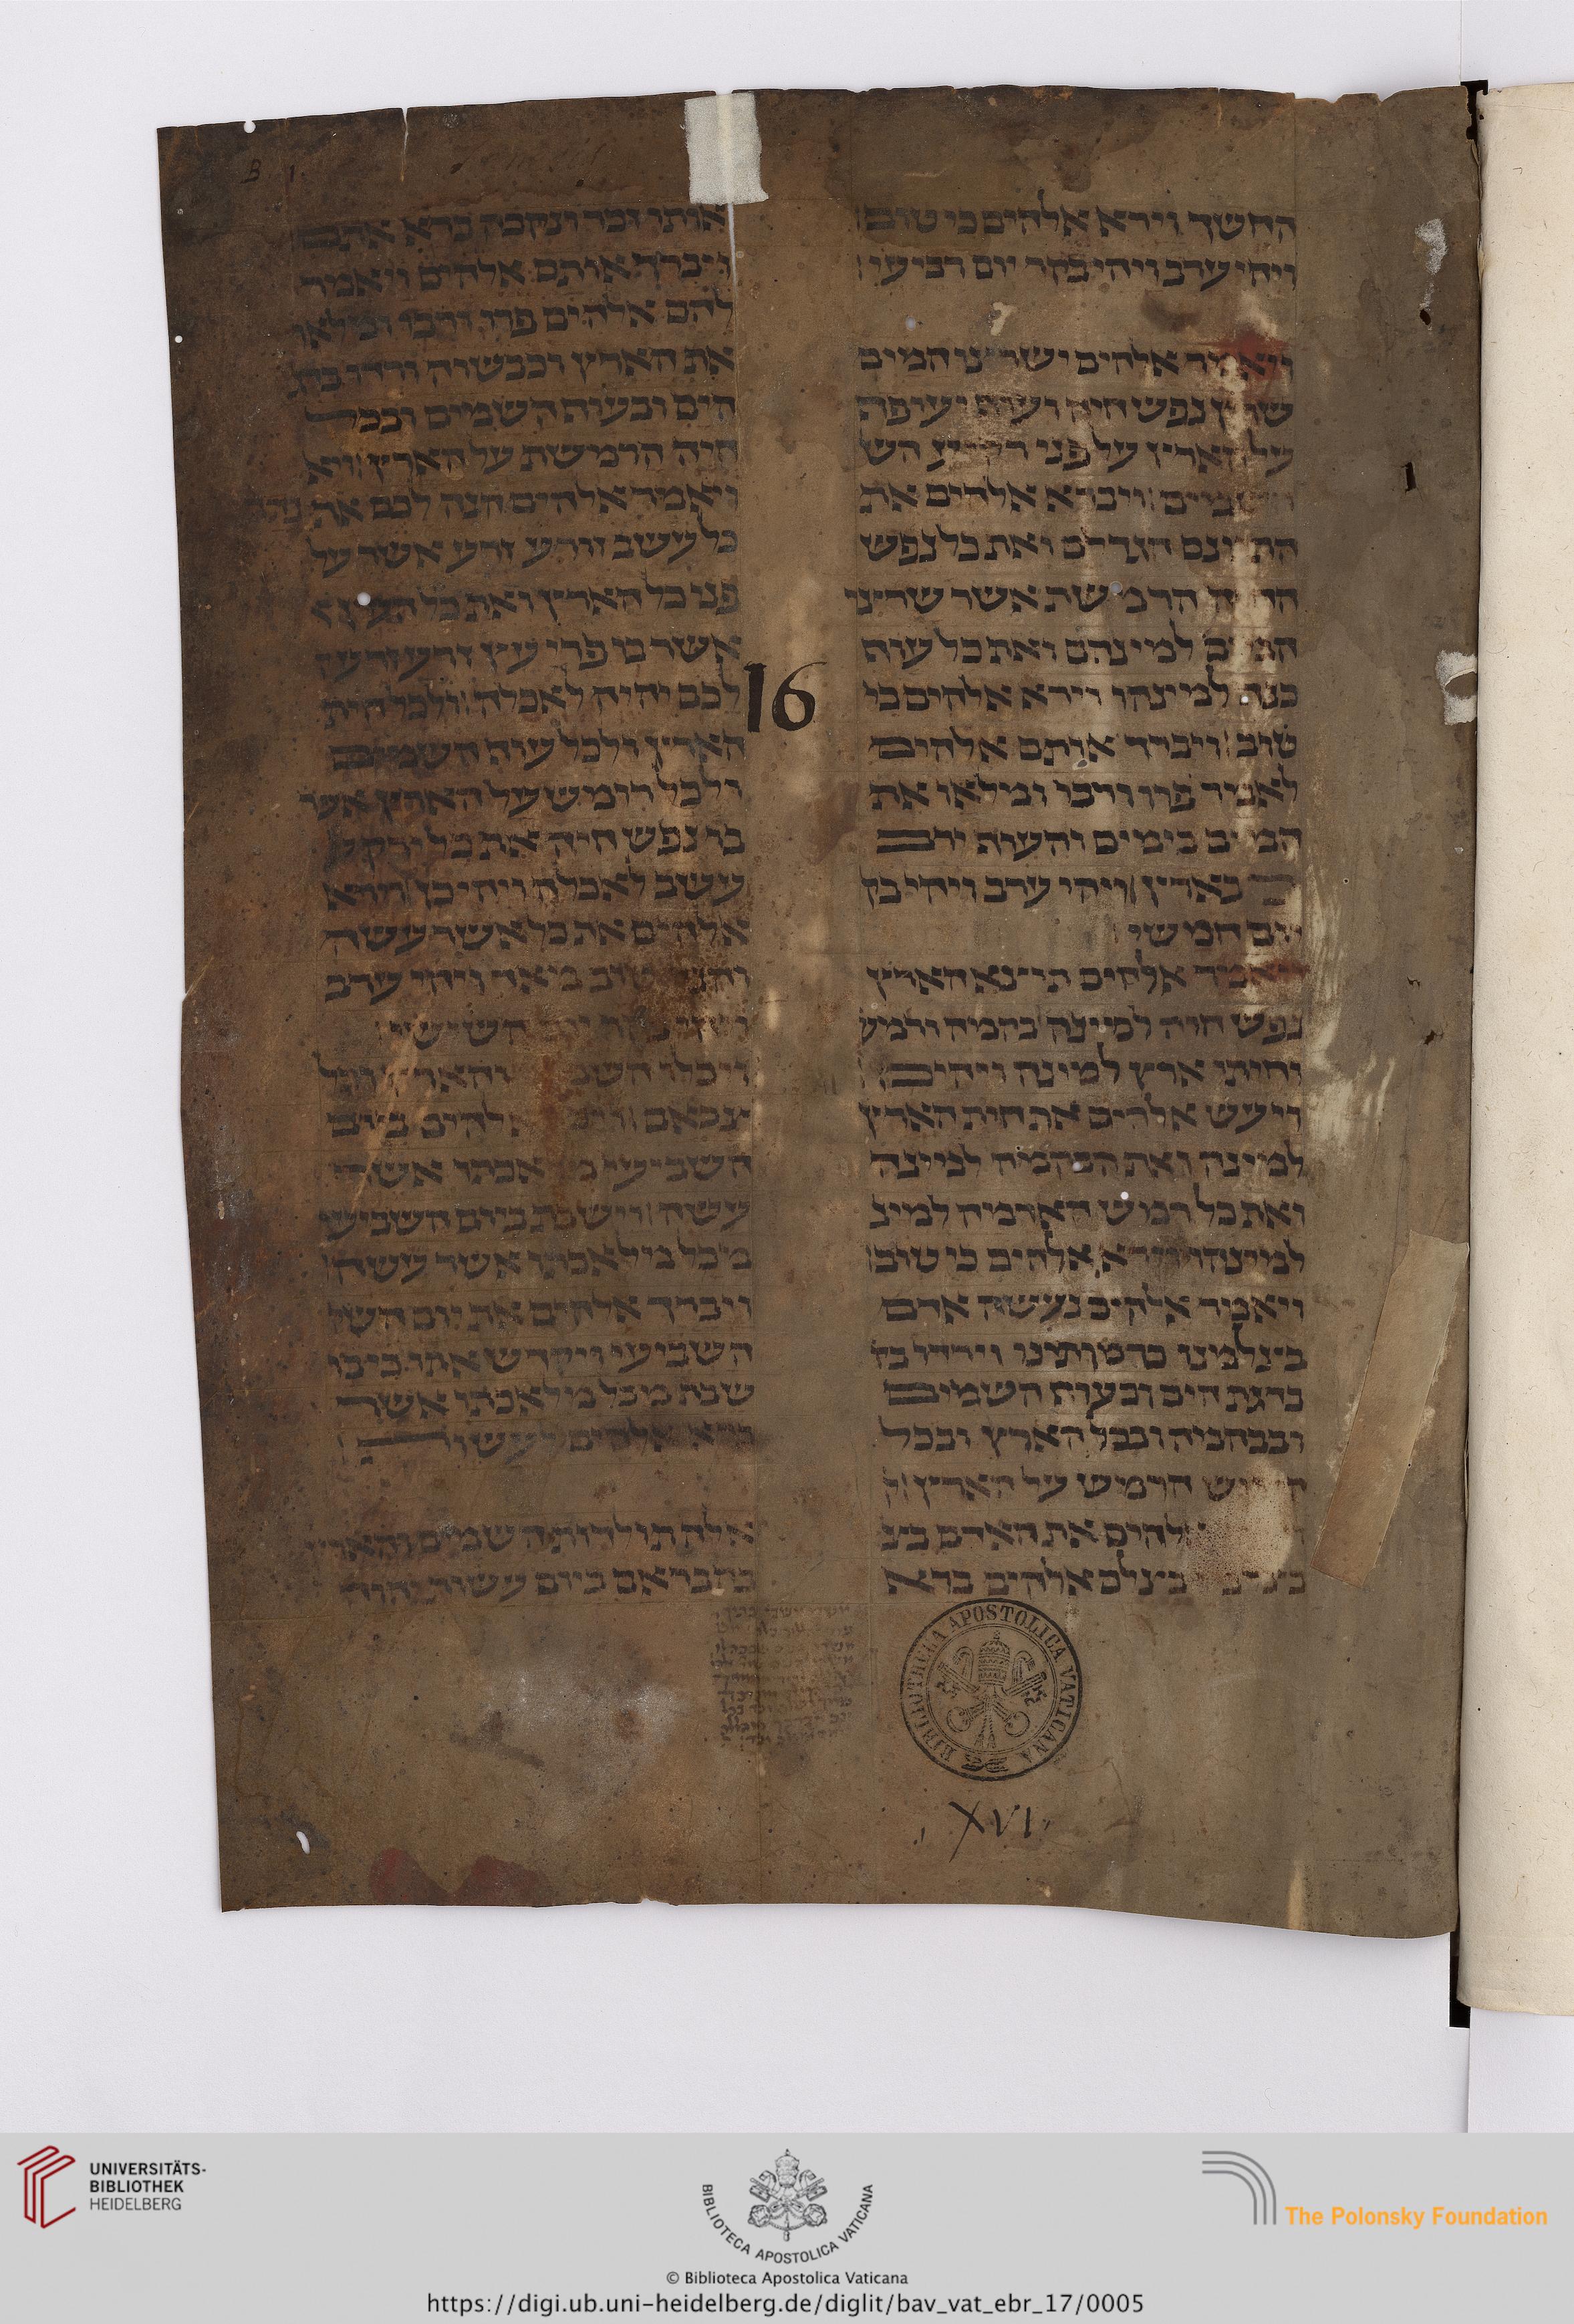 החשך וירא אלהים כי טוב
ויהי ערב ויהי בקר יום רביעי
ויאמר אלהים ישרצו המים
שרץ נפש חיה ועוף יעופף
על הארץ על פני רקיע הש
ויברא אלהים את
הגדלם ואת כל נפש
הרמשת אשר שרצו
למינהם ואת כל עוף
כנף למינהו וירא אלהים כי
טוב ויברך אותם אלהים
לאמר פרו ורבו ומלאו את
המים בימים והעוף ירב
בארץ ויהי ערב ויהי בק
יום חמישי
ויאמר אלהים תוצא הארץ
נפש חיה למינה בהמה ורמש
וחיתו ארץ למינה ויהי כן
ויעש אלהים את חית הארץ
למינה ואת הבהמה למינה
ואת כל רמש האדמה למינ
למינהו וירא אלהים כי טוב
ויאמר אלהים נעשה אדם
בצלמנו כדמותנו וירדו בד
בדגת הים ובעוף השמים
ובבהמה ובכל הארץ ובכל
הרמש על הארץ
אלהים את האדם בצ
בצלם אלהים ברא
אותו זכר ונקבה ברא אתם
ויברך אותם אלהים ויאמר
להם אלהים פרו ורבו ומלאו
את הארץ וכבשוה ורדו בדג
הים ובעוף השמים ובכל
חיה הרמשת על הארץ
ויאמר אלהים הנה לכם את
כל עשב זורע זרע אשר על
פני כל הארץ ואת כל העץ
אשר בו פרי עץ זרע זרע
לכם יהיה לאכלה ולכל חית
הארץ ולכל עוף השמים
ולכל רומש על הארץ אשר
בו נפש חיה את כל ירק
עשב לאכלה ויהי כן וירא
אלהים את כל אשר עשה
והנה טוב מאד ויהי ערב
ויהי בקר יום הששי
ויכלו השמים והארץ וכל
צבאם אלהים ביום
השביעי מלאכתו אשר
עשה וישבת ביום השביעי
מכל מלאכתו אשר עשה
ויברך אלהים את יום
השביעי ויקדש אתו כי בו
שבת מכל מלאכתו אשר
ברא אלהים לעשות
אלה תולדות השמים והארץ
בהבראם ביום עשות יהוה
16
1
B 1
BIBLIOTHECA APOSTOLICA VATICANA
XVI
UNIVERSITÄTS-
BIBLIOTHEK
HEIDELBERG
BIBLIOTECA APOSTOLICA VATICANA
The Polonsky Foundation
© Biblioteca Apostolica Vaticana
https://digi.ub.uni-heidelberg.de/diglit/bav_vat_ebr_17/0005